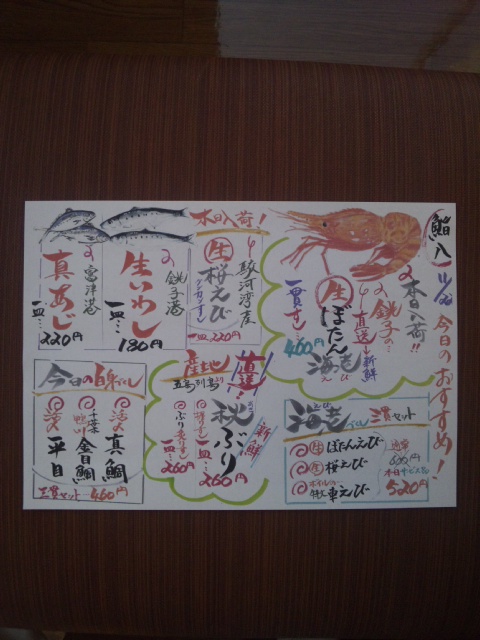 鮨八
今日のおすすめ!
本日入荷!!
銚子の…
直送!
新鮮
生ぼたん海老
えび
一貫すし
460円
本日入荷!
駿河湾産
生桜えび
一皿…220円
の銚子港
生いわし
一皿…180円
の富津港
真あじ
一皿…220円
海老づくし三貫セット
生ぼたんえび
生桜えび
ボイル
車えび
通常
600円
520円
産地直送!
五島列島
新鮮
ぶり
一皿…
260円
一皿…
260円
今日の白身づくし
活〆真鯛
千葉金目鯛
活〆平目
三貫セット460円